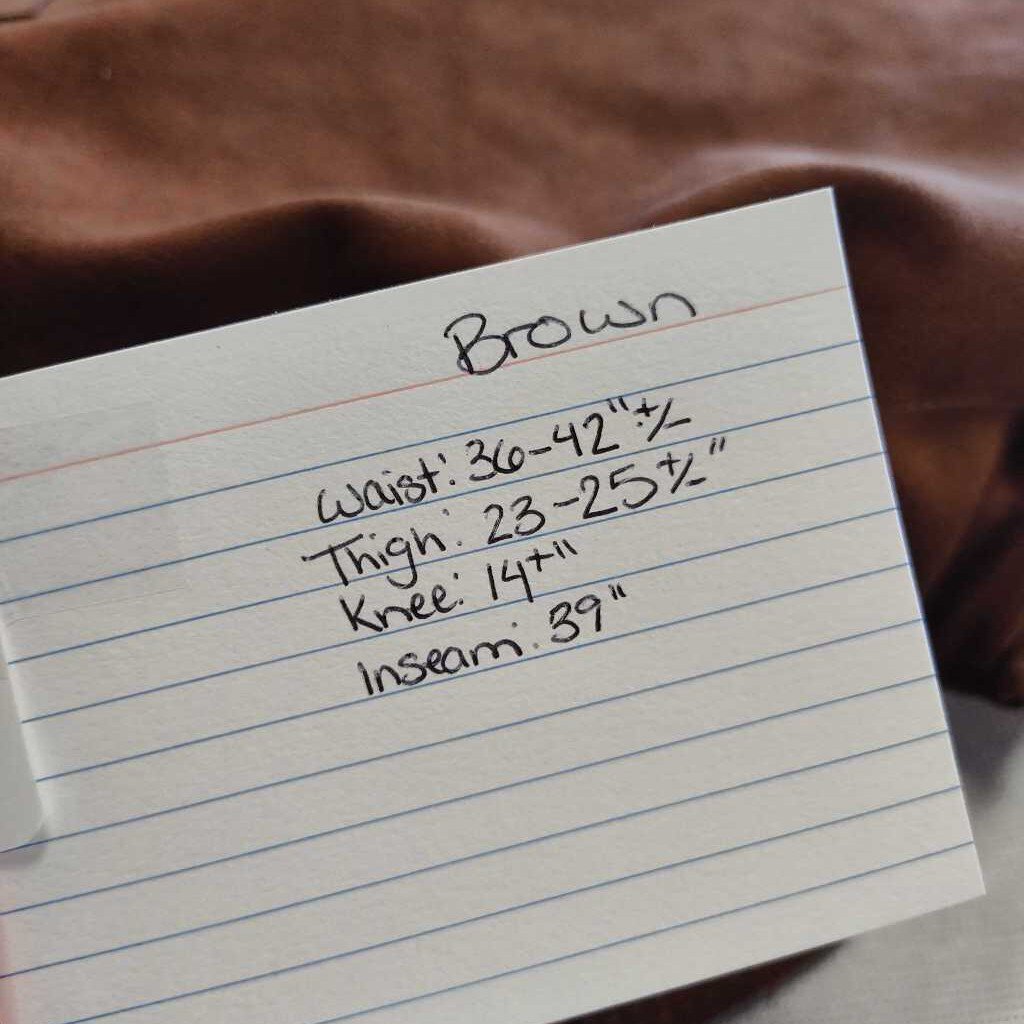 Brown
Waist: 36-42" +/-
Thigh: 23-25 +/- "
Knee: 14+"
Inseam: 39"